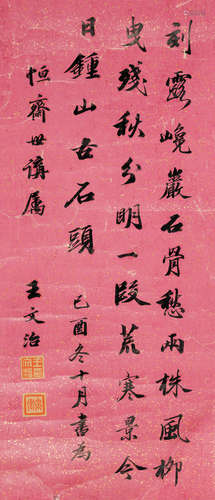 刻露巉巖石骨愁兩株風柳
曳殘秋分明一段荒寒景今
日鍾山古石頭
己酉冬十月書為
恒齋世講属
王文治